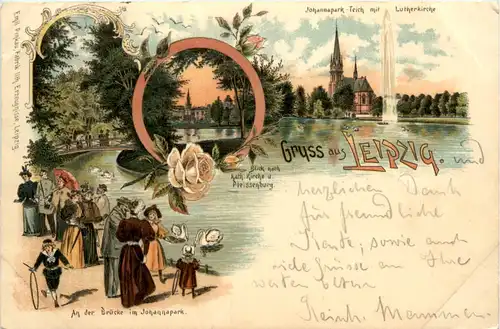 Johannapark Teich mit Lutherkirche
Gruss aus LEIPZIG. und
Blick nach
kath. Kirche u.
Pleissenburg.
herzlichen Dank
für freundliche
Karte; sowie auch
viele Grüsse an Ihre
werten Eltern
Reinh. Mamme
An der Brücke im Johannapark.
Leipzig